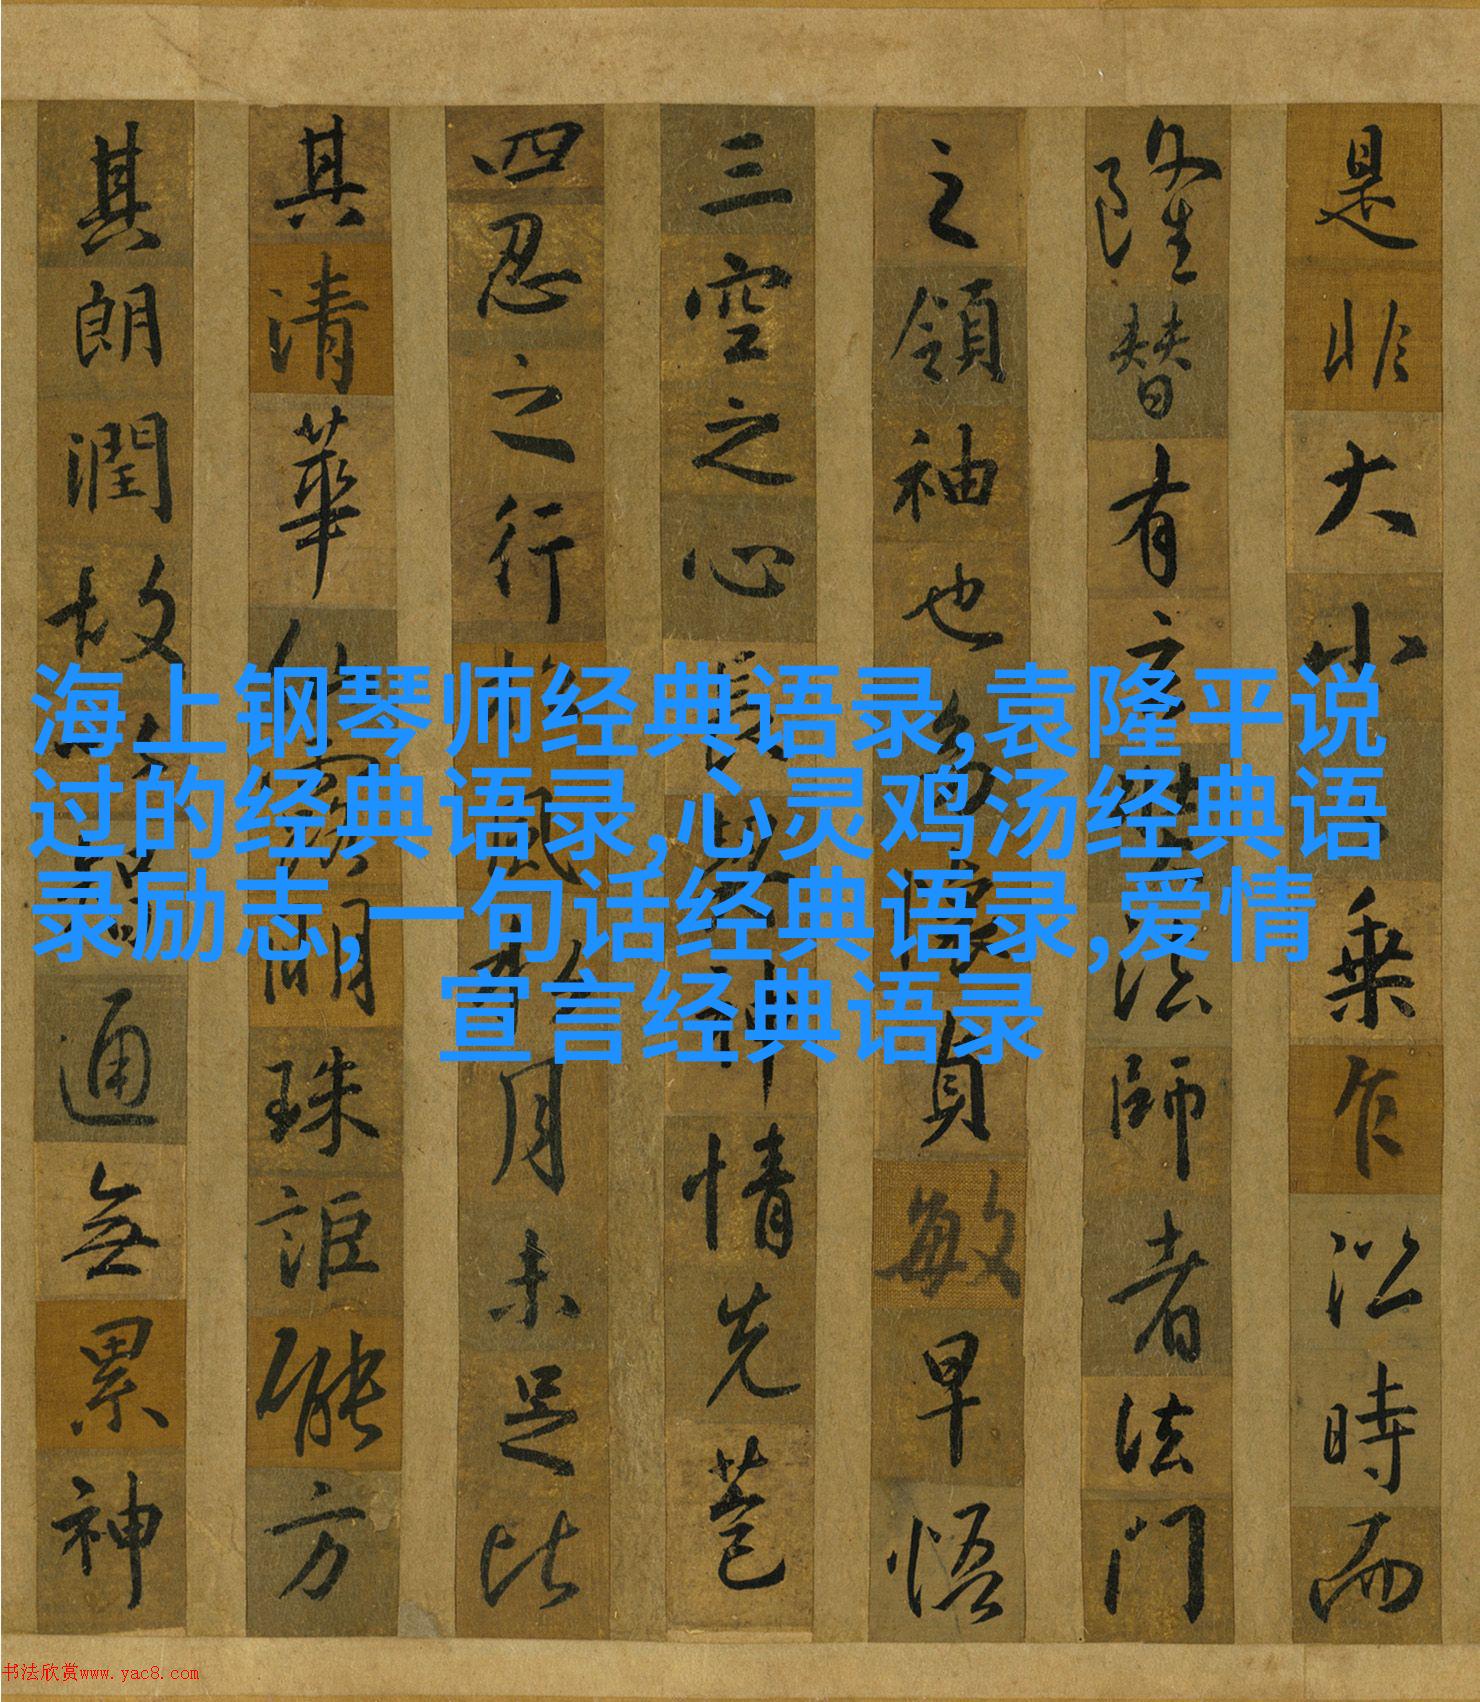 是非大小乘乍沿時而
隆替有玄奘法師者法門
之領袖也幼懷貞敏早悟
三空之心長契神情先苞
四忍之行松風水月未足比
其清華仙露明珠詎能方
其朗潤故以智通無累神
海上钢琴师经典语录,袁隆平说
过的经典语录,心灵鸡汤经典语
录励志,一句话经典语录,爱情
宣言经典语录
书法欣赏www.yac8.com